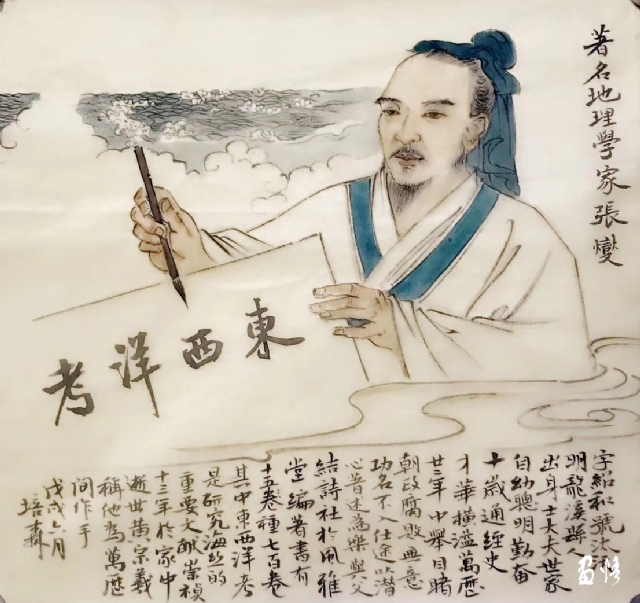 著名地理學家張燮
東西洋考
字紹和號
明龍溪縣人
出身士大夫世家
自幼聰明勤奋
十歲通經史
才華横溢萬歷
廿二年中舉目睹
朝政腐敗無意
功名不入仕途以潜
心著述為樂與父
結詩社於風雅
堂編著書有
十五卷種七百卷
其中東西洋考
是研究海丝的
重要文献崇禎
十三年於家中
逝世黄宗羲
稱他為萬歷
间作手
戊戌六月
培森